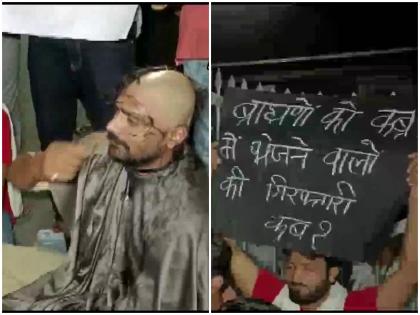 ब्राह्मणों को कब्र
में भेजने वालो
की गिरफ्तारी
कब?